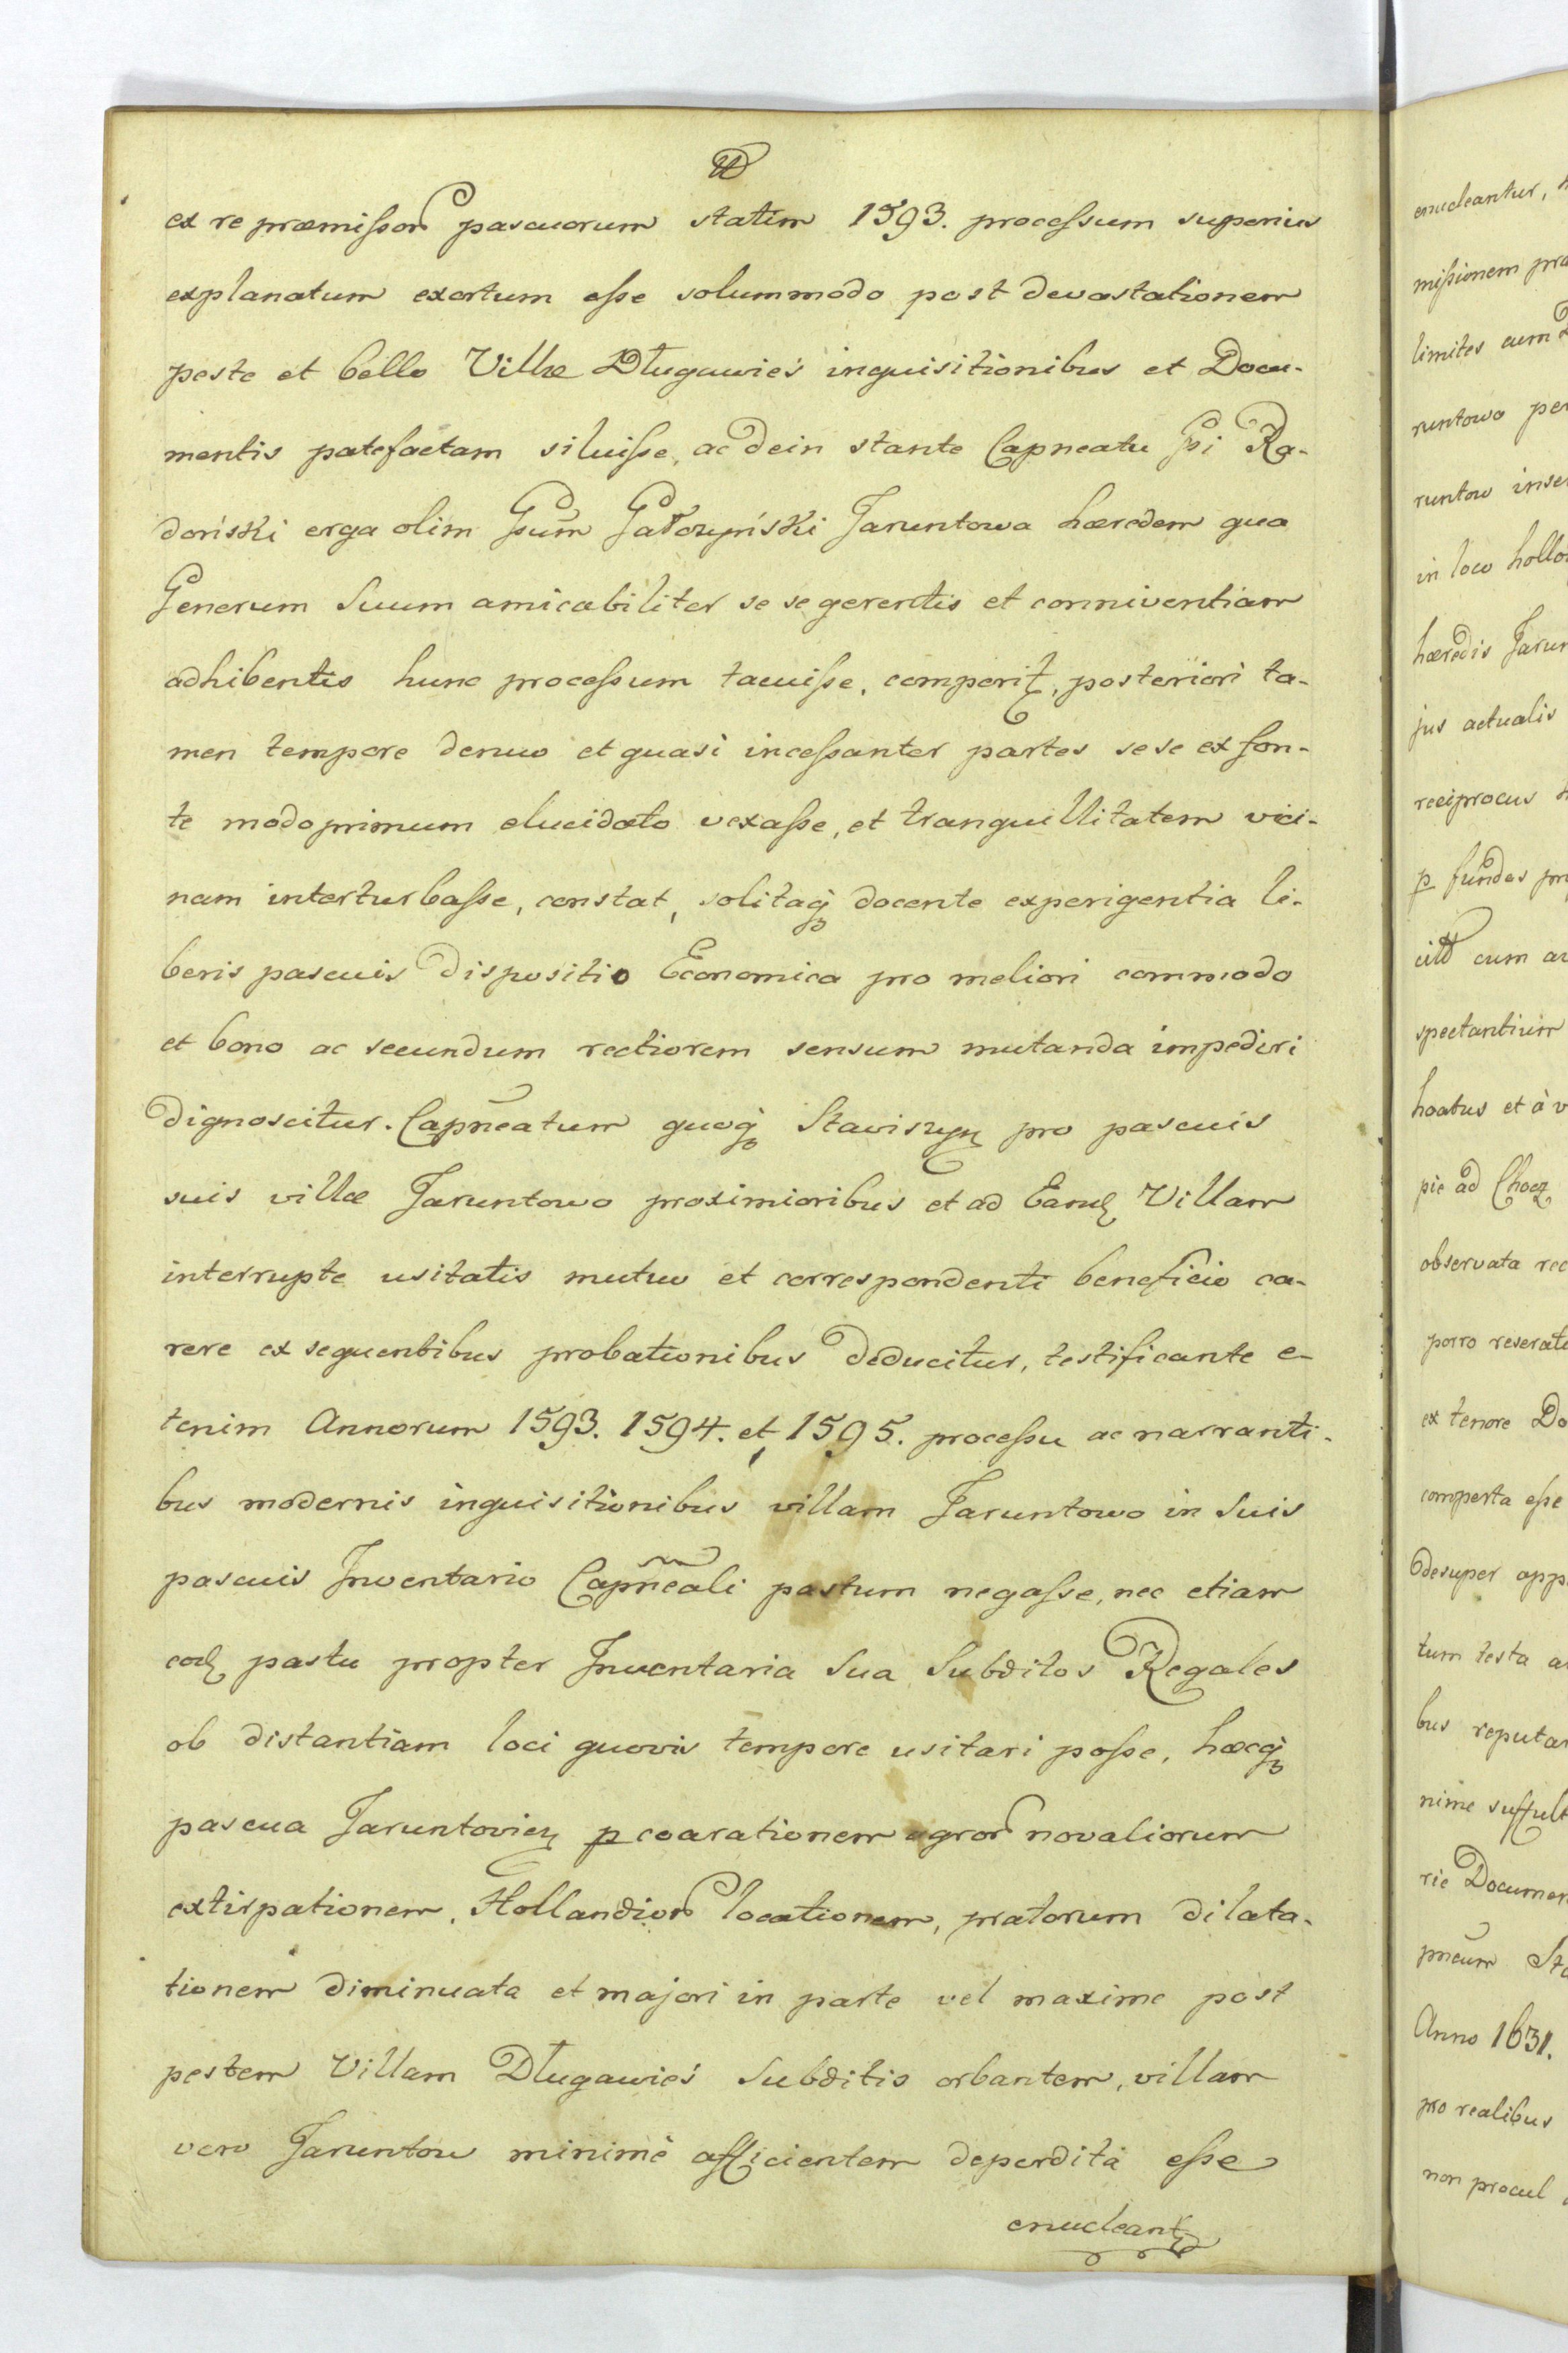 ex re præmissor pascuorum statim 1593. processum superius
explanatum exortum esse solummodo post devastationem
peste et bello Villæ Długawieś inquisitionibus et Docu-
mentis patefactam siluisse, ac dein stante Capneatu Gsi Ra-
doński erga olim Gsum Gałczyński Jaruntowa hæredem qua
Generum Suum amicabiliter se se gerentis et conniventiam
adhibentis hunc processum tacuisse, comperitz, posteriori ta-
men tempore denuo et quasi incessanter partes sese ex fon-
te modo primum elucidato vexasse, et tranquillitatem vici-
nam interturbasse, constat, solitaqz docente experigentia li-
beris pascuis dispositio Economica pro meliori commodo
et bono ac secundum rectiorem sensum mutanda impediri
dignoscitur. Capn̄eatum quoqz Stawiszyn pro pascuis
suis villæ Jaruntowo proximioribus et ad Eandz Villam
interrupte usitatis mutuo et correspondenti beneficio ca-
rere ex sequentibus probationibus deducitur, testificante e-
tenim Annorum 1593. 1594. et 1595. processu ac narranti-
bus modernis inquisitionibus villam Jaruntowo in Suis
pascuis Inventario Capn̄eali pastum negasse, nec etiam
eodz pastu propter Inventaria Sua Subditos Regales
ob distantiam loci quovis tempore usitari posse, hæcqz
pascua Jaruntoviens p coarationem agror novaliorum
extirpationem, Hollandior locationem, pratorum dilata-
tionem diminuata et majori in parte vel maxime post
pestem Villam Długawieś Subditis orbantem, villam
vero Jaruntow minimè afficientem deperdita esse
enucleantz
enucleantur,
missionem præ
limites cum
runtowo per
runtow inse
in loco hollo
hæredis Jarun
jus actualis
reciprocus
p fundos
cum ar
spectantium
hoatus et à v
pie ad Chocz
observata rec
porro reserata
ex tenore Do
comperta esse
desuper app
tum testa a
bus reputar
nime suffult
rie Documen
pneum Sta
Anno 1631.
pro realibus
non procul